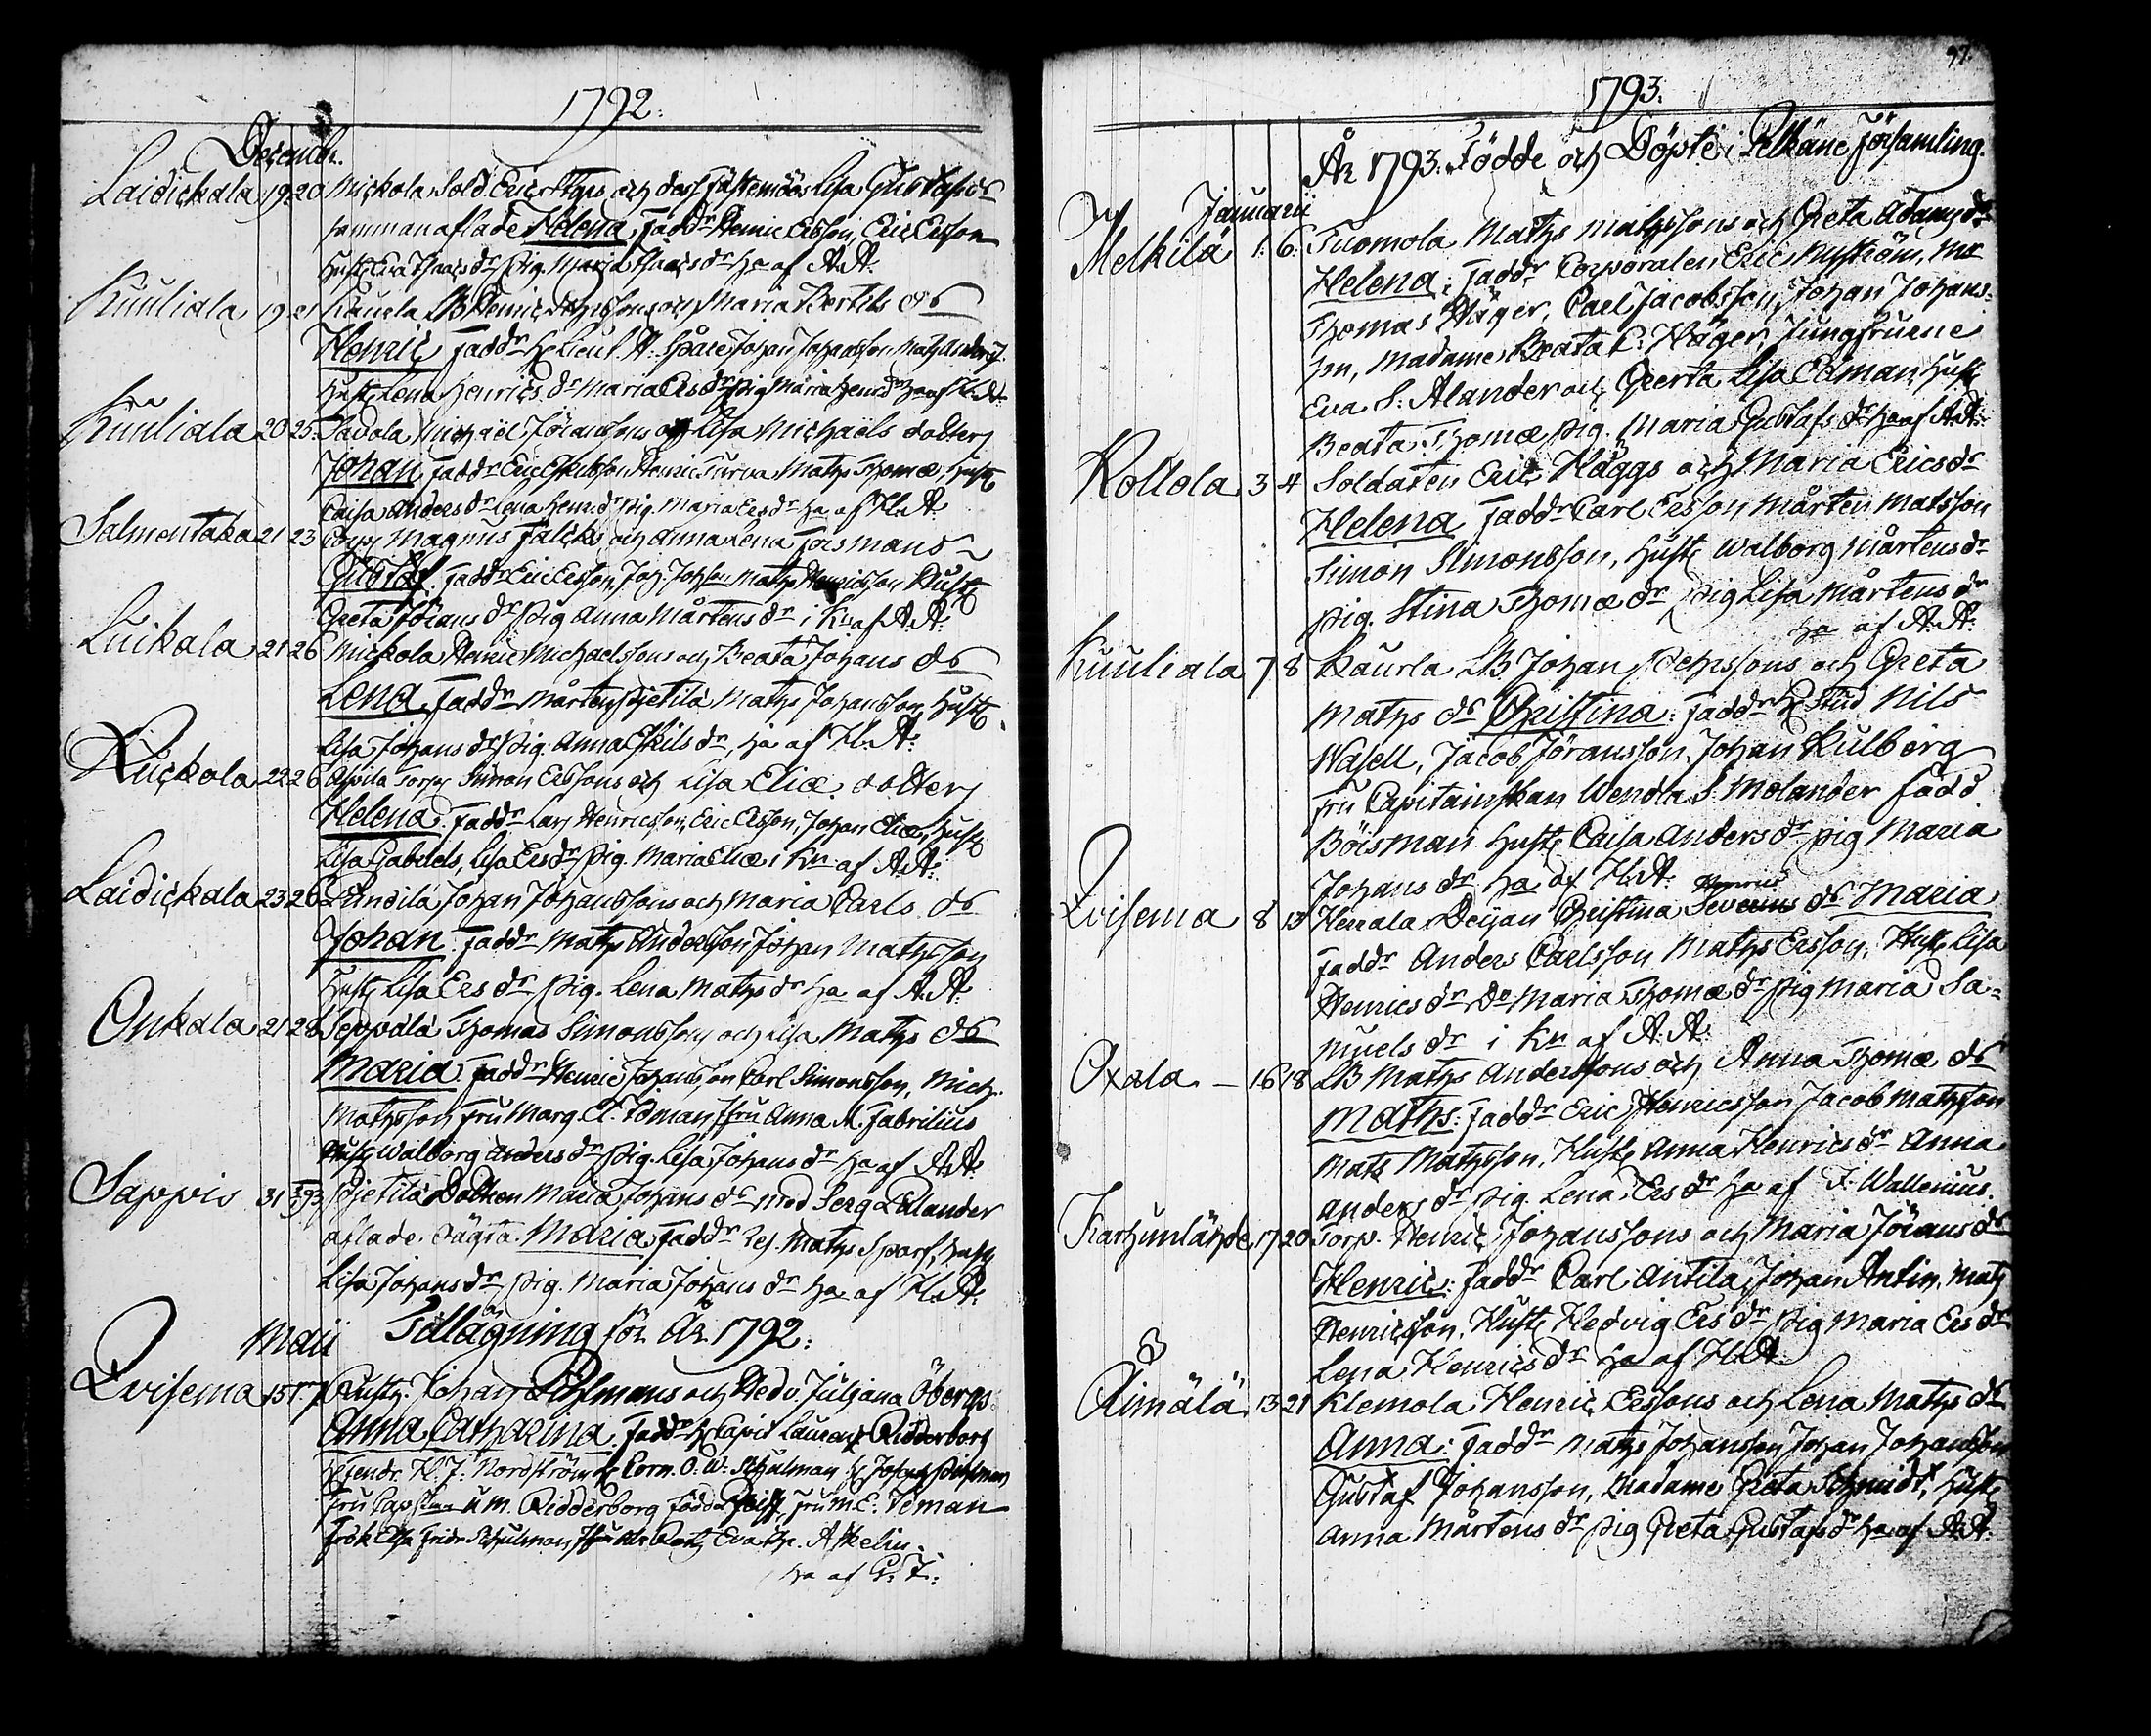 1792.
Decembr.
Laidickala 19 20 Mickola Sold. Eric och des fästemös Lisa Gustafs dr
sammanaflade Helena. Faddr Henric Ersson, Eric Ersson
Hust. Eva dr pig. Maria dr ha af A.A.
Kuuliala 19 21 Kaurla LB Henric och Maria Bertils dr
Henric Faddr H. Lieut. A. Spåre Johan Johansson Mats Anders.
Hust. Lena Henrics dr Maria Ers dr pig Maria Henr. dr ha af H.A.
Kuuliala 20 25. Savola Michaël Jöranssons och Lisa Michaëls dotters
Johan Faddr Eric Henric Turva Maths Thomæ, Hust.
Caisa Anders dr Lena Henr. dr pig. Maria Ers dr ha af H.A.
Salmentaka 21 23 Corp. Magnus Falcks och Anna Lena Forsmans
Gustaf. Faddr Eric Ersson, Joh. Johsson Maths Henricsson Hust.
Greta Jörans dr pig Anna Mårtens dr i Kn af A.A.
Luikala 21 26 Mickola Henric Michaelssons och Beata Johans dr
Lena. Faddr Mårten Pietilä Maths Johansson, Hust.
Lisa Johans dr pig. Anna Eskils dr, ha af H.A.
Ruckola 22 26 Torp. Simon Erssons och Lisa Eliæ dotters
Helena. Faddr Lars Henricsson, Eric Ersson, Johan Eliæ, Hust.
Lisa Gabriels, Lisa Ers dr pig. Maria Eliæ i Kn af A.A.
Laidickala 23 26 Johan Johanssons och Maria Carls dr
Johan. Faddr Maths Andersson Johan Mathsson
Hust. Lisa Ers dr pig. Lena Maths dr ha af A.A.
Onkala 21 28 Seppälä Thomas Simonssons och Lisa Maths dr
Maria. Faddr Henric Johansson Carl Simonsson, Mich.
Mathsson Fru Marg. E. Idman Fru Anna M. Fabrilius
Hust. Walborg Anders dr pig. Lisa Johans dr ha af A.A.
Sappis 31 Pietilä Dottren Maria Johans dr med Serg. Lalander
aflade oägta Maria, Faddr Res. Maths Sparf, Hust.
Lisa Johans dr pig. Maria Johans dr ha af H.A.
Maii Tillägning för År 1792:
Qvisema 15 17 Rusth. Johan Pihlmans och Hedv. Juliana Öbergs
Anna Catharina. Faddr H. Capit Laurent Ridderborg
H. Fendr. H. J. Nordström H. Corn. O. W. Schulman H. Johan Pihlman
Fru U.M. Ridderborg födda Reiff, Fru M.E: Idman
Frök Elsa Fridr Schulman Eva Askelin.
ha af G. I.
97.
1793.
År 1793. Födde och Döpte i Pelkäne församling.
Januarii
Melkilä 1. 6. Tuomola Maths Mathssons och Greta Adams dr
Helena. Faddr Corporalen Eric Nyström, Mr
Thomas Häger, Carl Jacobsson, Johan Johans=
son, Madame Beata C. Häger, Jungfruerne
Eva S. Alander och Greta Lisa Edman, Hust.
Beata Thomæ pig. Maria Gustafs dr ha af A.A.
Kollola 3 4 Soldaten Eric Häggs och Maria Erics dr
Helena Faddr Carl Ersson Mårten Matsson
Simon Simonsson, Hust. Walborg Mårtens dr
pig. Stina Thomæ dr pig Lisa Mårtens dr
ha af A.A.
Kuuliala 7 8 Kaurla LB Johan Pehrssons och Greta
Maths dr Christina: Faddr H. Stud Nils
Wasell, Jacob Jöransson, Johan Kulberg
Fru Capitainskan Wendla S. Molander född
Böisman Hust. Caisa Anders dr pig Maria
Johans dr ha af H.A.
Qvisema 8 13 Herrala Deijan Christina Severins Henrics dr Maria
Faddr Anders Carlsson Maths Ersson, Hust. Lisa
Henrics dr Do Maria Thomæ dr pig Maria Sa=
muels dr i Kn af A.A.
Oxala 16 18 LB Maths Anderssons och Anna Thomæ dr
Maths: Faddr Eric Henricsson Jacob Mathsson
Mats Mathsson. Hust. Anna Henrics dr Anna
Anders dr pig. Lena Ers dr ha af F. Wallenius.
Karhunlähde 17 20 Torp. Henric Johanssons och Maria Jörans dr
Henric: Faddr Carl Antila, Johan Antin, Maths
Henricsson. Hust. Hedvig Ers dr pig Maria Ers dr
Lena Henrics dr ha af H.A.
Äimälä 13 21 Klemola Henric Erssons och Lena Maths dr
Anna: Faddr Maths Johansson Johan Johansson
Gustaf Johansson, Madame Greta Schmidt, Hust.
Anna Mårtens dr pig Greta Gustafs dr ha af A.A.